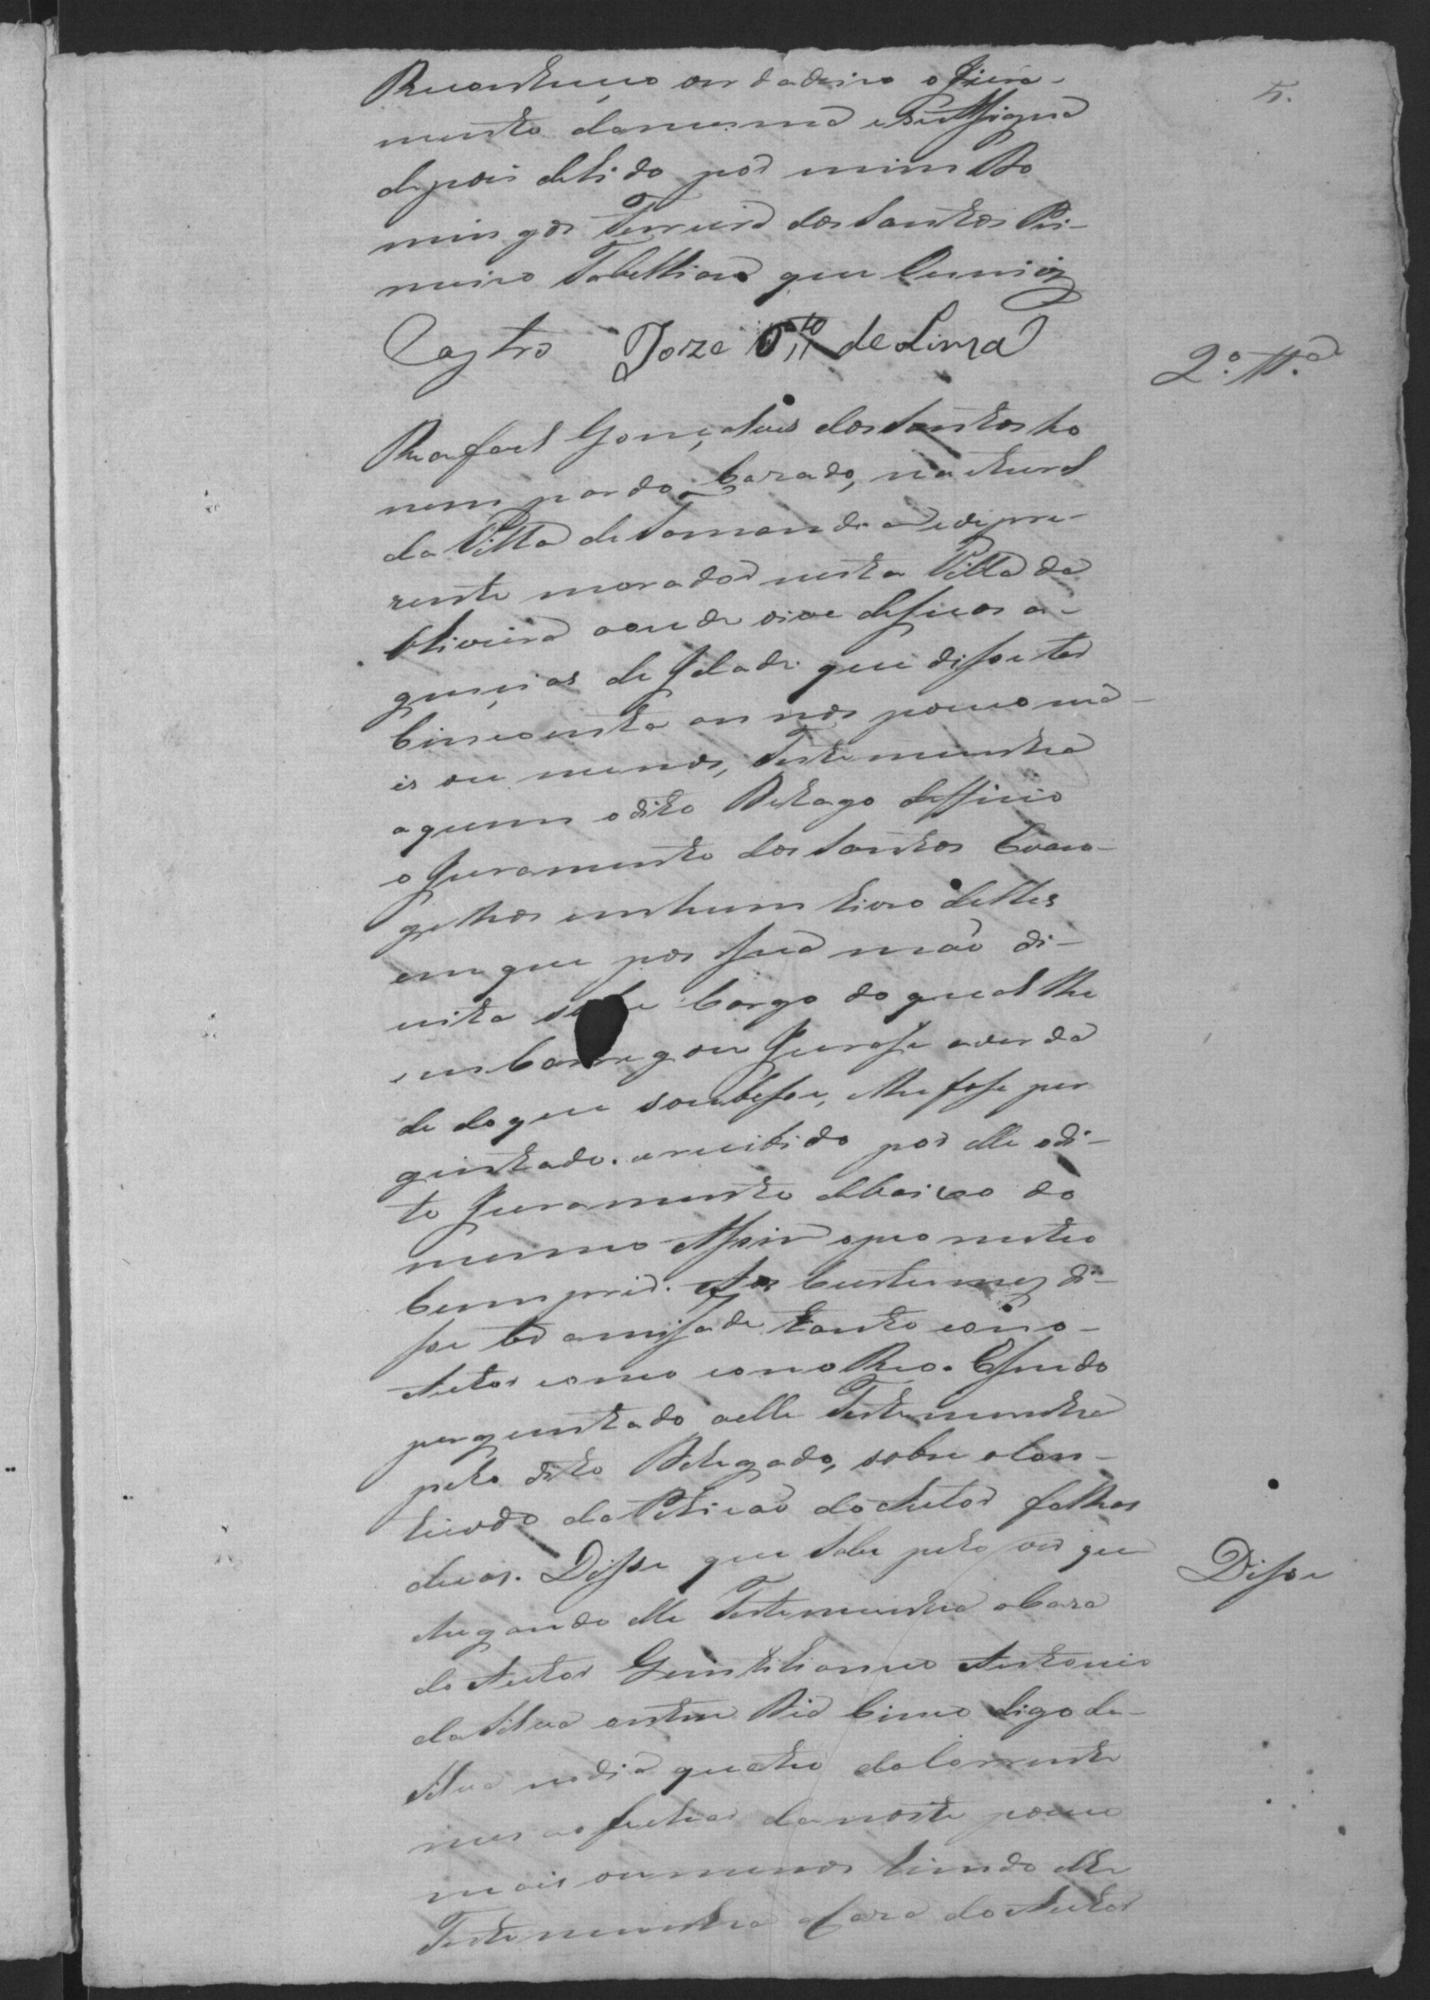 5.
Reconheceo verdadeiro o Jura-
mento damesma eseAssigna
depois deLido por mim Do
mingos Ferreira dos Santos Pri-
meiro Tabelliam que Escrivi
Castro Joze Pto de Lima
2.ª Tt.ª
Rafael Gonçalves dos Santos ho
mem pardo, Cazado, natural
da Villa de Tamandua ede pre-
zente morador nesta Villa da
Oliveira aonde vive deSuas a-
gencias de Idade que disse ter
Cincoenta annos pouco ma-
is ou menos, Testemunha
aquem odito Delegado defficio
o Juramento dos Santos Evan-
gelhos emhum Livro delles
emque pos Sua mão di-
reita Cargo do qual lhe
emCarregou Jurase averda
de doque soubesse, elhe fose per
guntado. erecebido por elle odi-
to Juramento debaixo do
mesmo Assim oprometeo
Cumprir. Aos Custumes di-
sse ter amisade tanto com o-
Autor como com o Reo. ESendo
perguntado aelle Testemunha
pelo dito Delegado, sobre oCon-
theudo daPetição do Autor folhas
duas. Disse que Sabe pelo ver que
Disse
chegando elle Testemunha aCaza
do Autor Gentiliano Antonio
daSilva Cinco digo da
Silva nodia quatro doCorrente
mes ao fechar danoite pouco
mais oumenos hindo elle
Testemunha aCaza do Autor